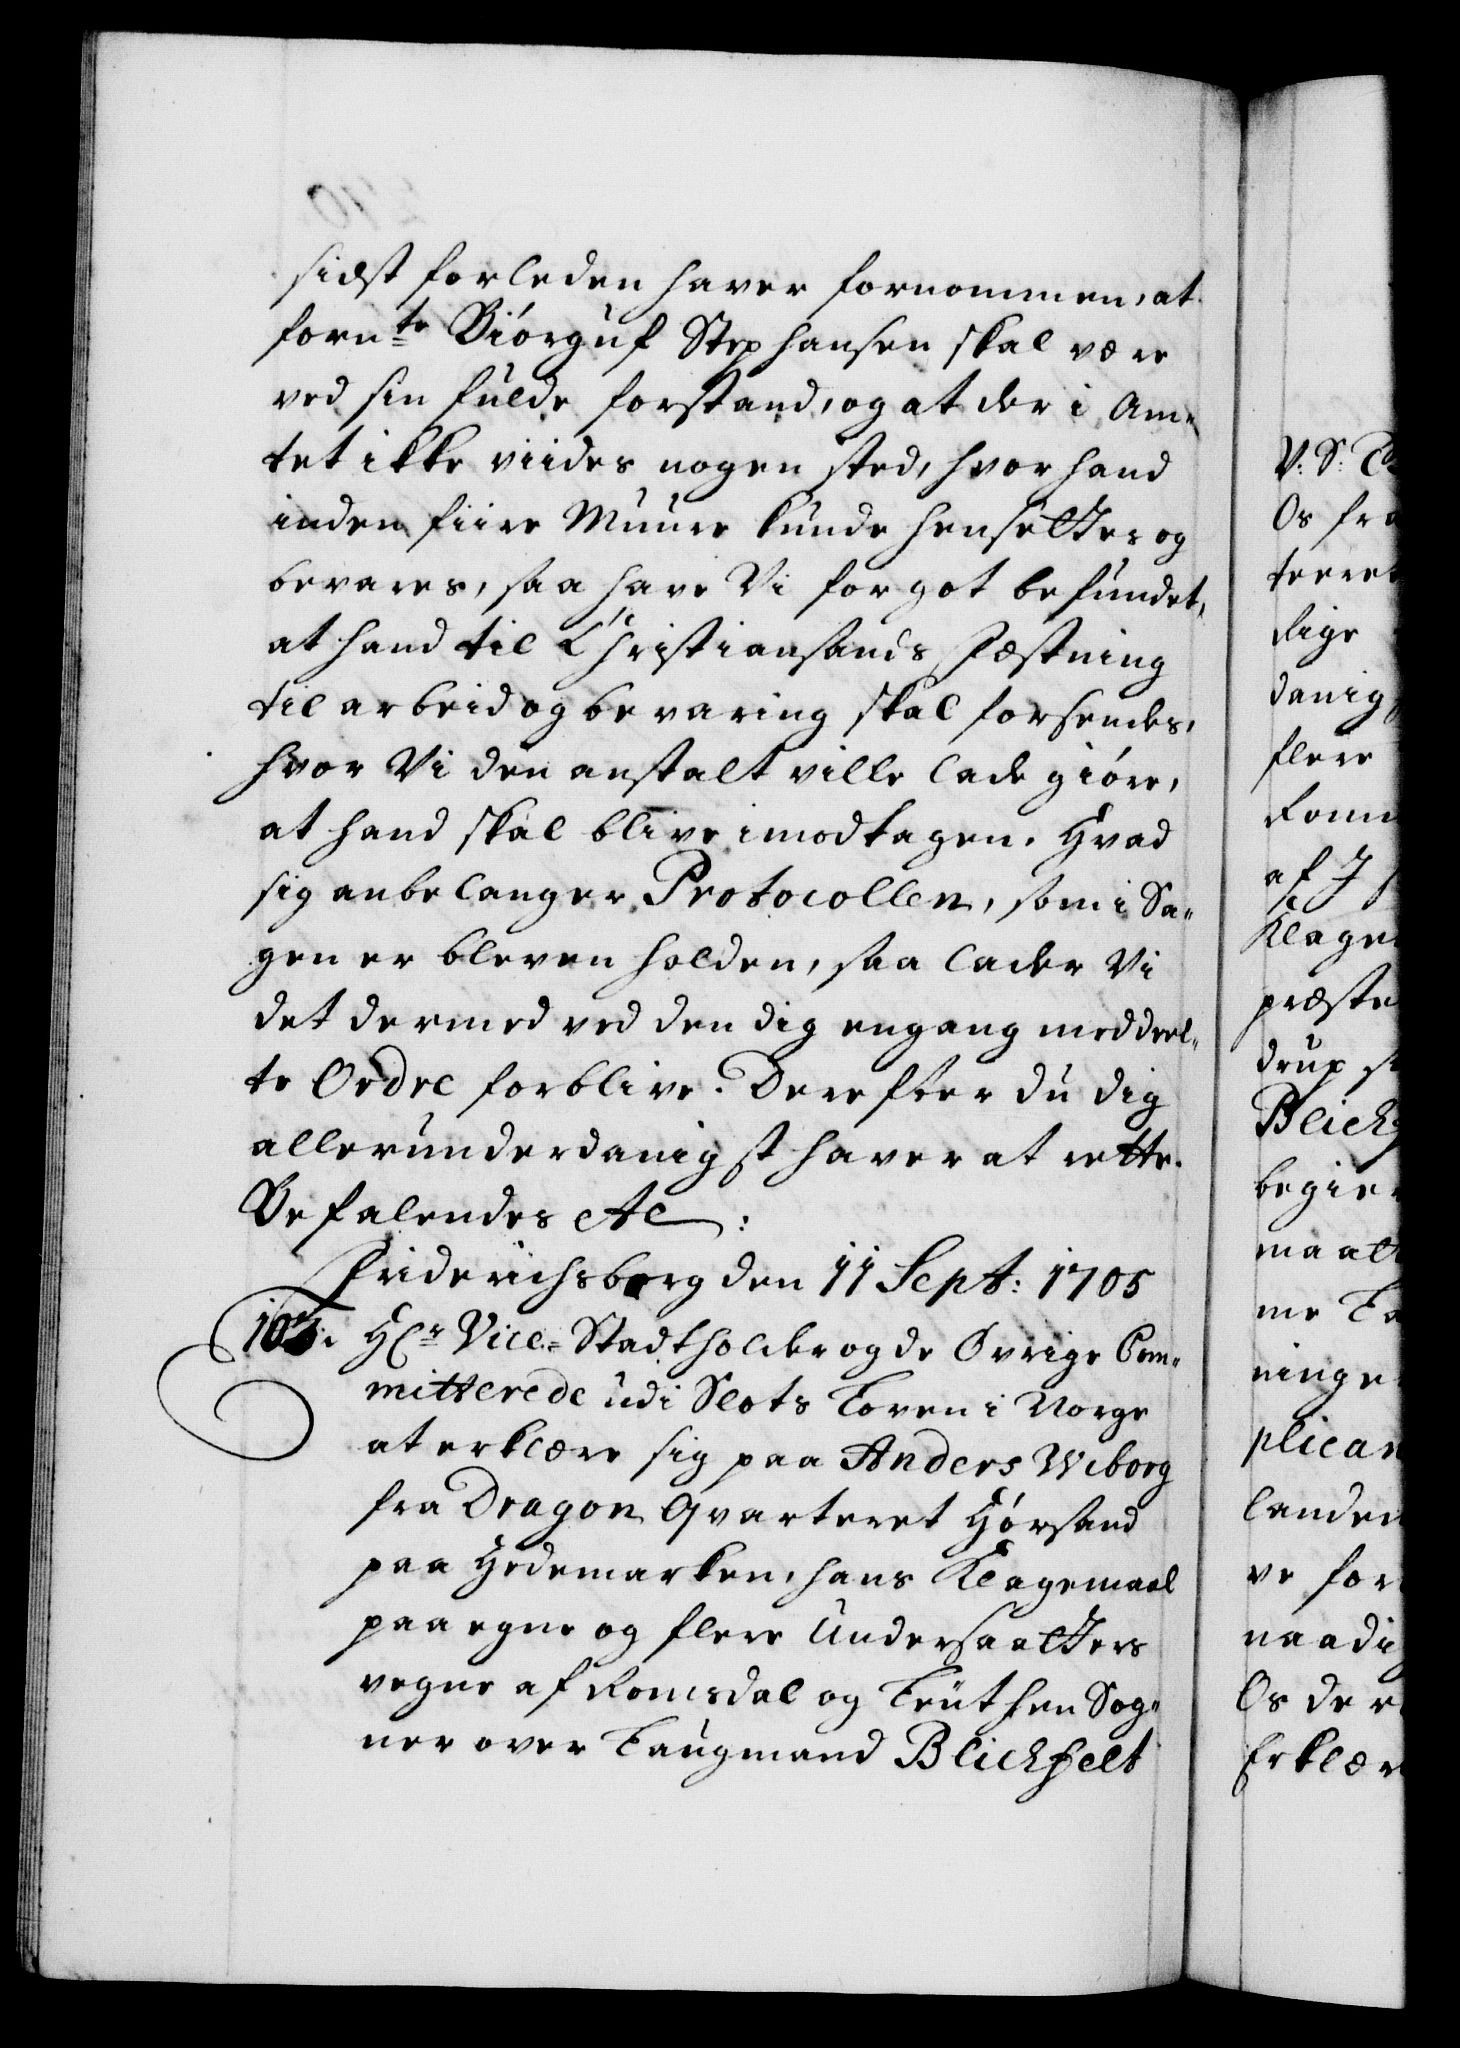 sidst forleden haver fornommen, at
fornte Biórguf Stephansen skal være
ved sin fulde forstand, og at der i Am-
tet ikke viides nogen sted, hvor hand
inden fiire Muure kunde hensettes og
bevares, saa have Vi for got befundet,
at hand til Christiansands Fæstning
til arbeid og bevaring skal forsendes,
hvor Vi den anstalt ville lade gióre,
at hand skal blive imodtagen. Hvad
sig anbelanger Protocollen, som i Sa-
gen er bleven holden, saa lader Vi
det dermed ved den dig engang meddeel-
te Ordre forblive. Derefter du dig
allerunderdanigst haver at rette.
Befalendes etc:
Friderichsborg den 11 Sept: 1705
103. Hr Vice-Stadtholder og de Øvrige Com-
mitterede udi Slots Loven i Norge
at erklære sig paa Anders Wiborg
fra Dragon Qvarteret Hórsand
paa Hedemarken, hans Klagemaal
paa egne og flere Undersaatters
vegne af Romsdal og Leuthen Sog-
ner over Laugmand Blichfelt
V: S: T
Os fra
teeret
dige
danig
flere
Roms
af J
Klage
præste
drup s
Blichf
begier
maalt
me La
ninge
plican
landen
ve for
naadi
Os der
Erklær